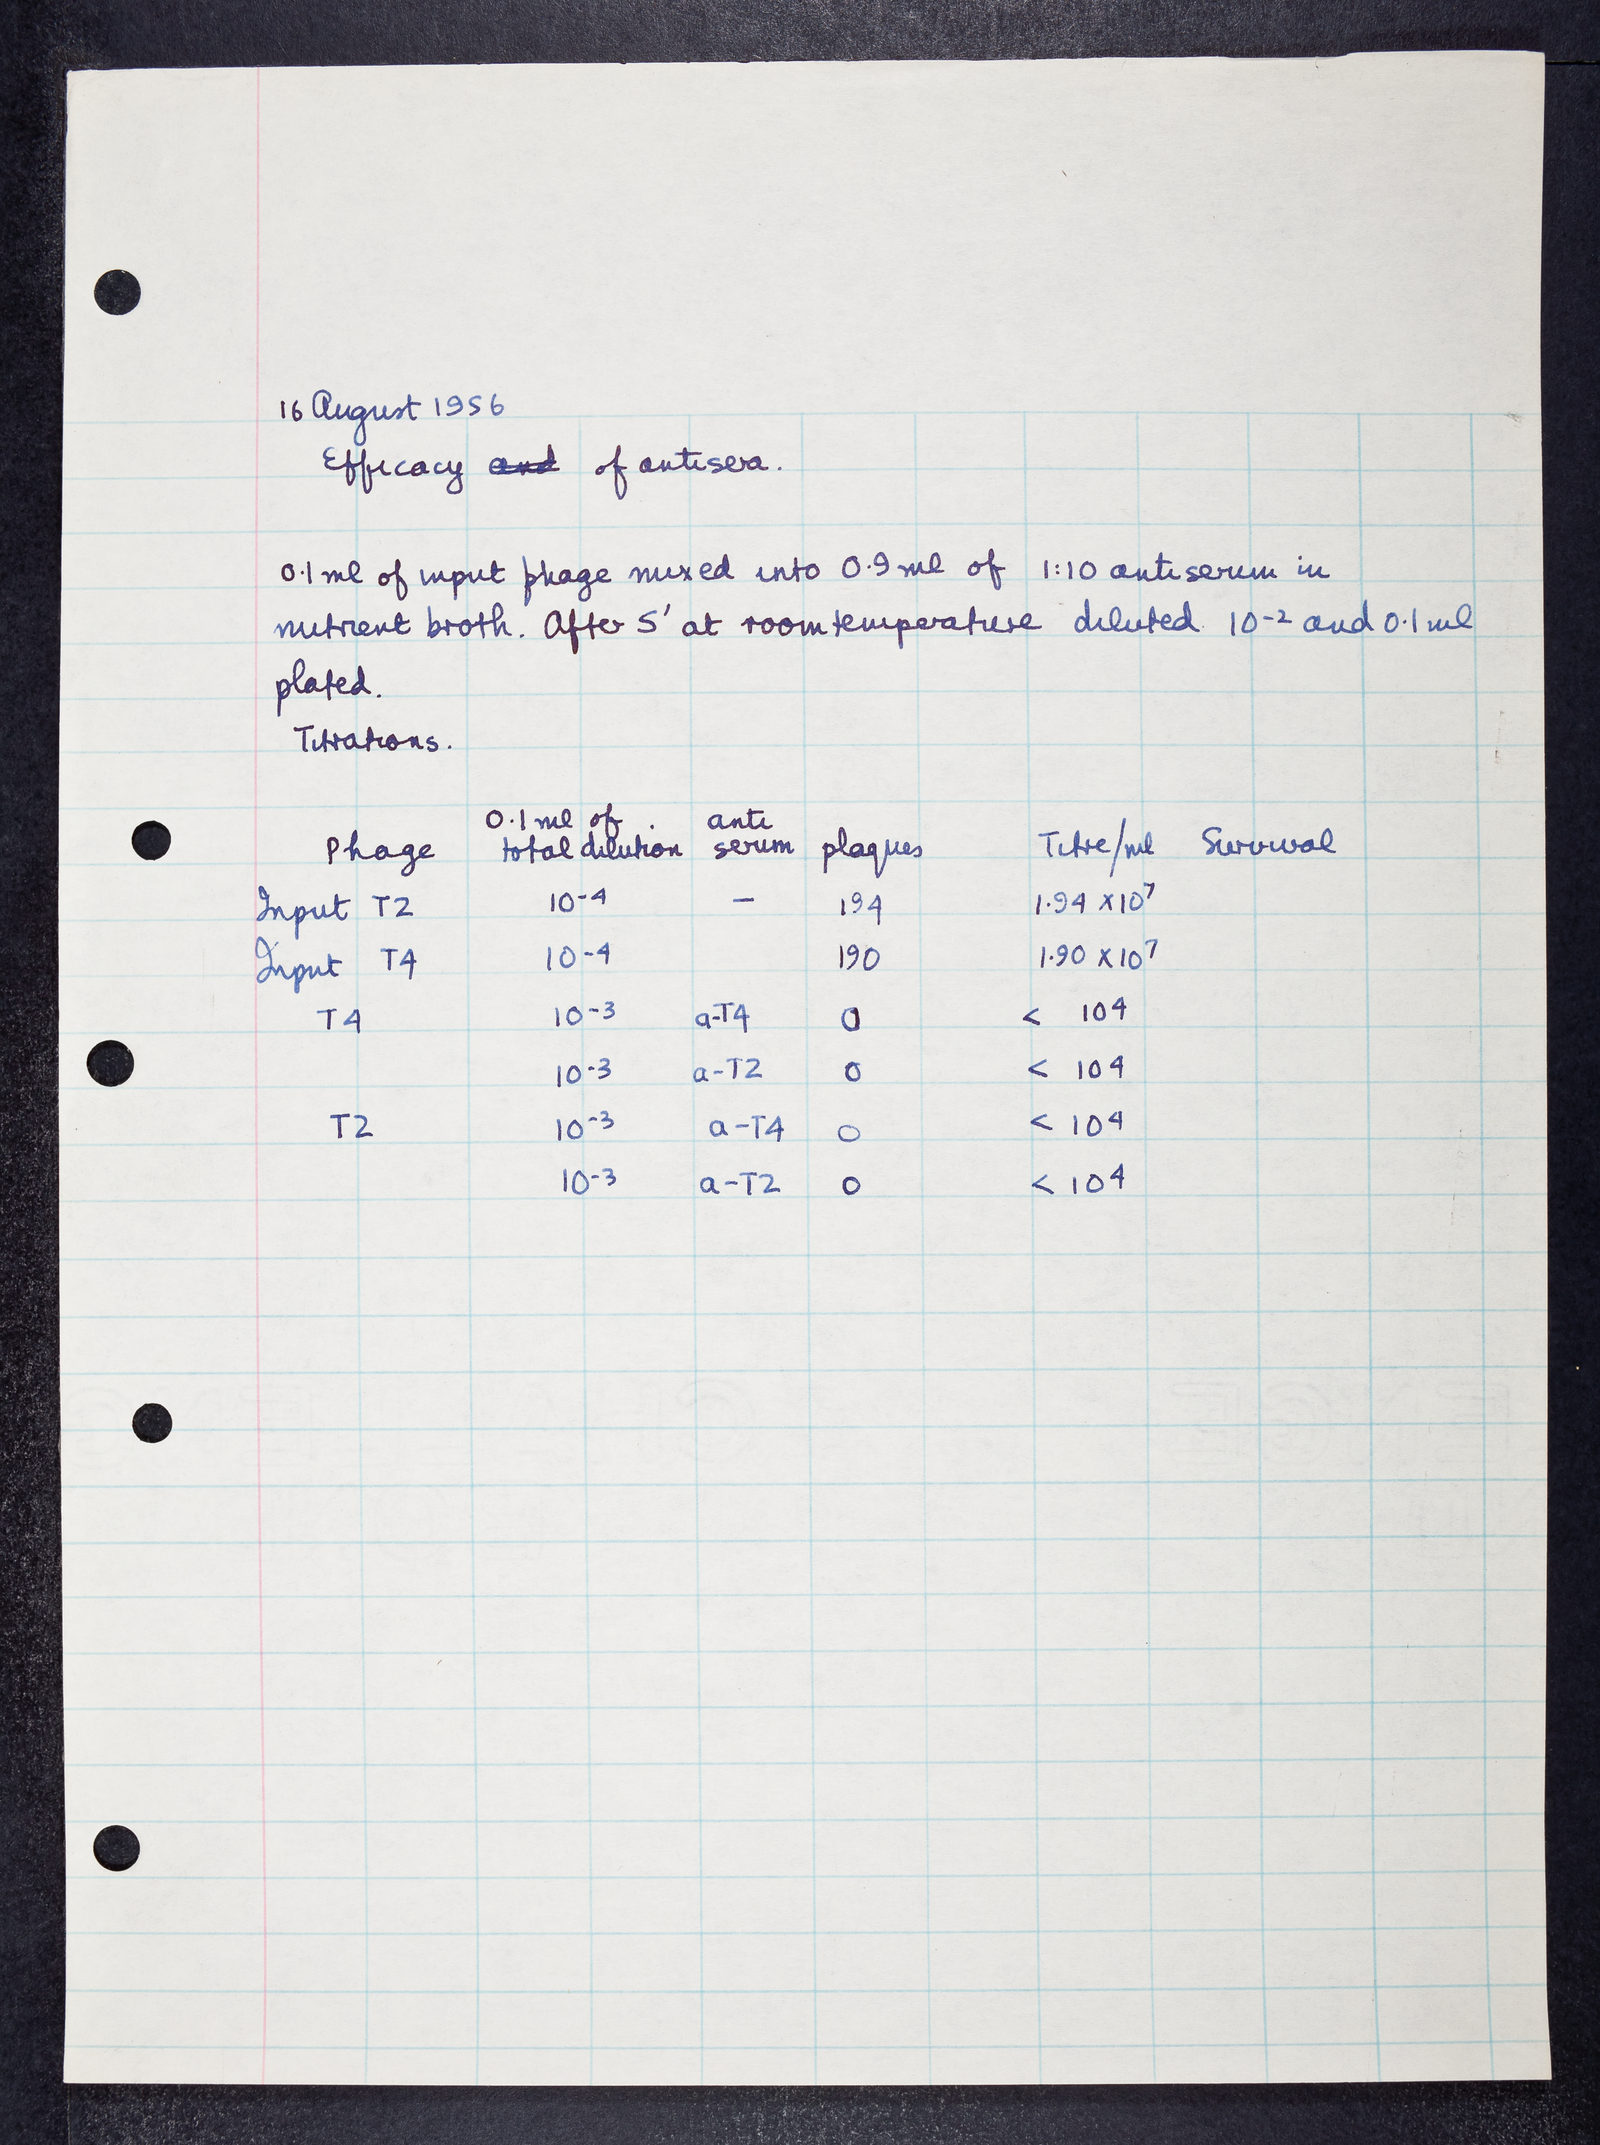 16 August 1956
Efficacy and of antisera.
0.1 ml of input phage mixed into 0.9 ml of 1:10 antiserum in
nutrient broth. After 5' at room temperature diluted 10-2 and 0.1 ml
plated.
Titrations.
0.1 ml of anti
Phage total dilution serum plaques Titre/ml Survival
Input T2 10-4 — 194 1.94 x 10⁷
Input T4 10-4 190 1.90 x 10⁷
T4 10-3 a-T4 0 < 10⁴
10-3 a-T2 0 < 10⁴
T2 10-3 a-T4 0 < 10⁴
10-3 a-T2 0 < 10⁴